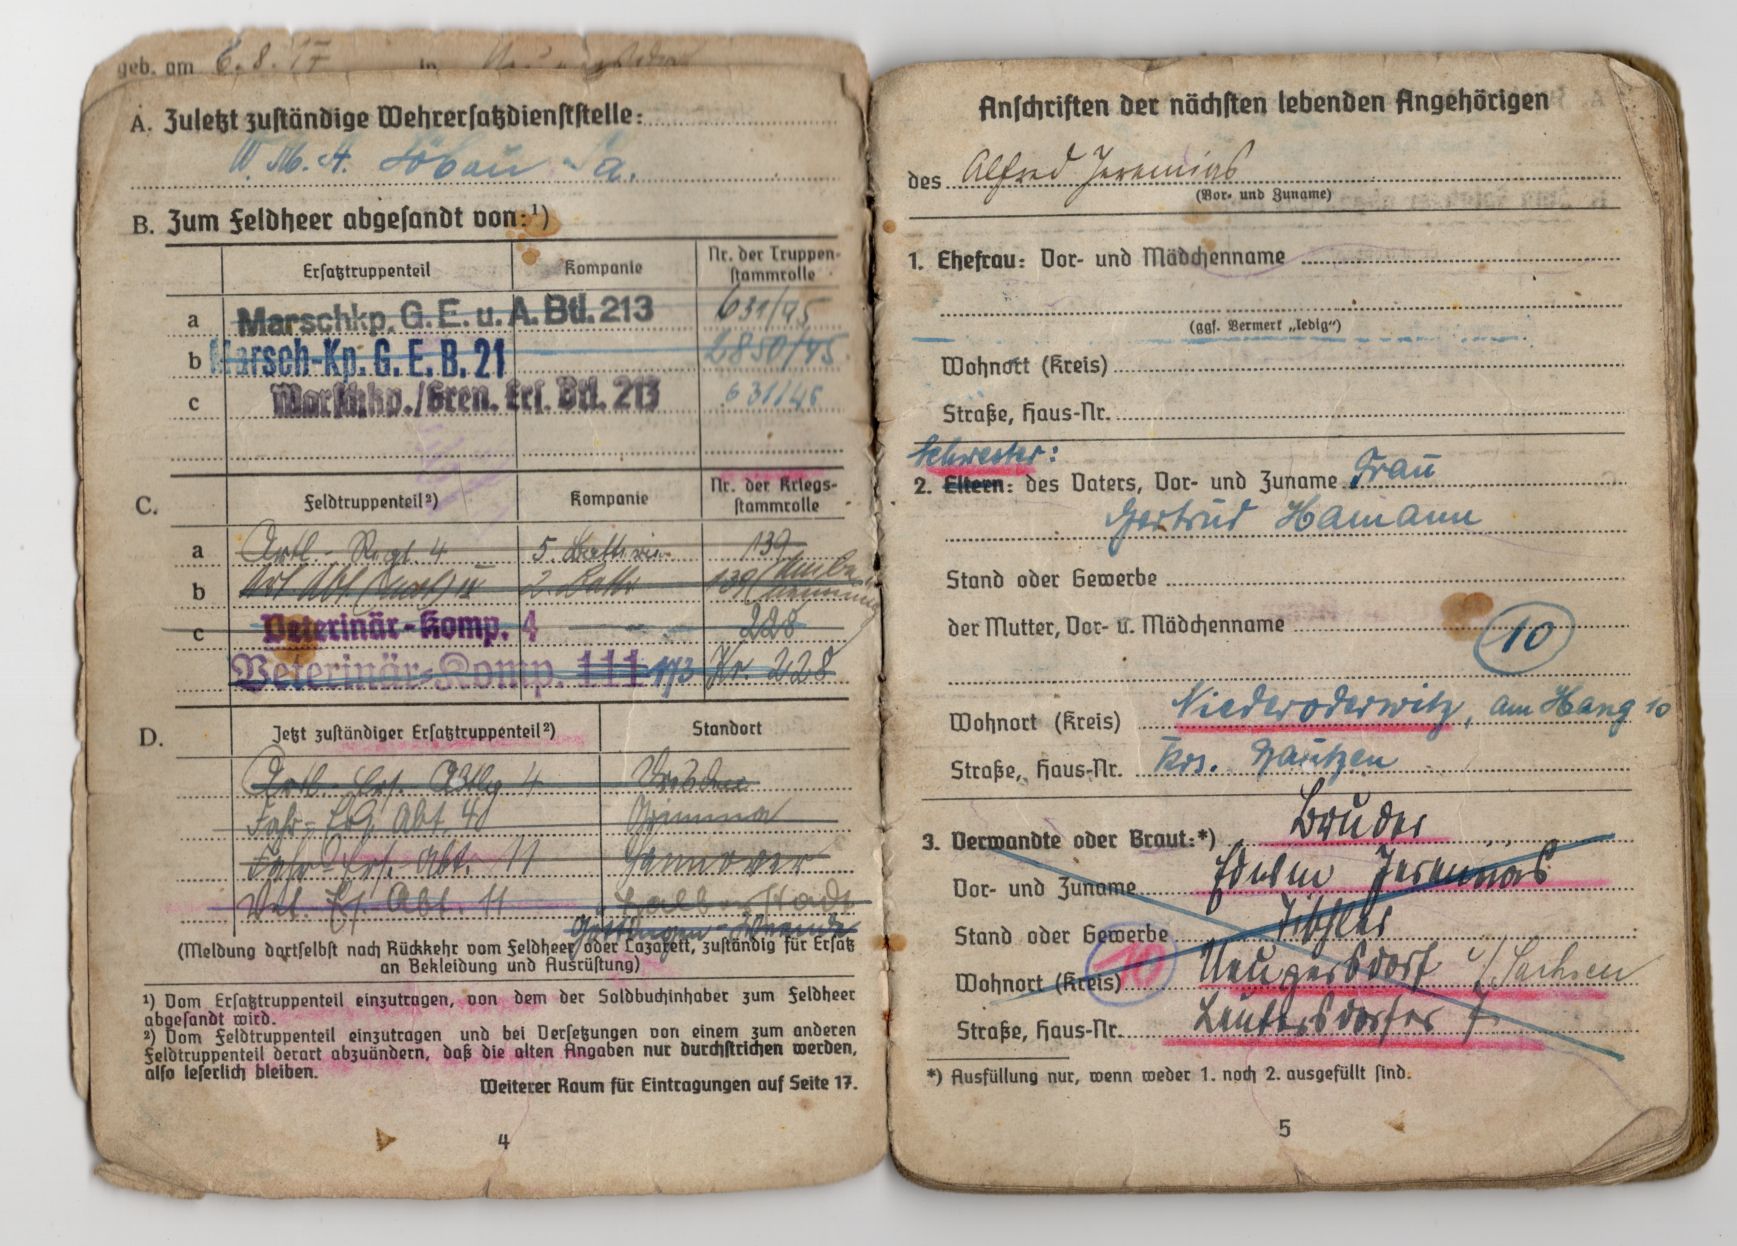 geb. am 6.8.17 in
A. Zuletzt zuständige Wehrersatzdienststelle:
W. M. A. Löbau Sa.
B. Zum Feldheer abgesandt von:¹)
Ersatztruppenteil Kompanie Nr. der Truppen-
stammrolle
a Marschkp. G. E. u. A. Btl. 213 631/45
b Marsch-Kp. G. E. B. 21 2850/45
c Marschkp./Gren. Ers. Btl. 213 631/45
C. Feldtruppenteil²) Kompanie Nr. der Kriegs-
stammrolle
a Artl.- Regt 4 5. Batterie 139
b Art Abt. 2. Battr 139
c Veterinär-Komp. 4 — 228
Veterinär-Komp. 111 173 Nr. 228
D. Jetzt zuständiger Ersatztruppenteil²) Standort
Artl.- Ers. Abtlg 4 Dresden
Fahr- Ers. Abt. 4 Grimma
Fahr- Ers. Abt. 11 Hannover
Vet. Ers. Abt. 11 Halberstadt
Göttingen - Weende
(Meldung dortselbst nach Rückkehr vom Feldheer oder Lazarett, zuständig für Ersatz
an Bekleidung und Ausrüstung)
¹) Vom Ersatztruppenteil einzutragen, von dem der Soldbuchinhaber zum Feldheer
abgesandt wird.
²) Vom Feldtruppenteil einzutragen und bei Versetzungen von einem zum anderen
Feldtruppenteil derart abzuändern, daß die alten Angaben nur durchstrichen werden,
also leserlich bleiben.
Weiterer Raum für Eintragungen auf Seite 17.
4
Anschriften der nächsten lebenden Angehörigen
des Alfred Jeremias
(Vor- und Zuname)
1. Ehefrau: Vor- und Mädchenname
(ggf. Vermerk „ledig“)
Wohnort (Kreis)
Straße, Haus-Nr.
Schwester:
2. Eltern: des Vaters, Vor- und Zuname Frau
Gertrud Hamann
Stand oder Gewerbe
der Mutter, Vor- u. Mädchenname
10
Wohnort (Kreis) Niederoderwitz, am Hang 10
Straße, Haus-Nr. Krs. Bautzen
3. Verwandte oder Braut:*) Bruder
Vor- und Zuname Edwin Jeremias
Stand oder Gewerbe Tischler
Wohnort (Kreis) 10 Neugersdorf i/Sachsen
Straße, Haus-Nr. Leutersdorfer 7
*) Ausfüllung nur, wenn weder 1. noch 2. ausgefüllt sind.
5